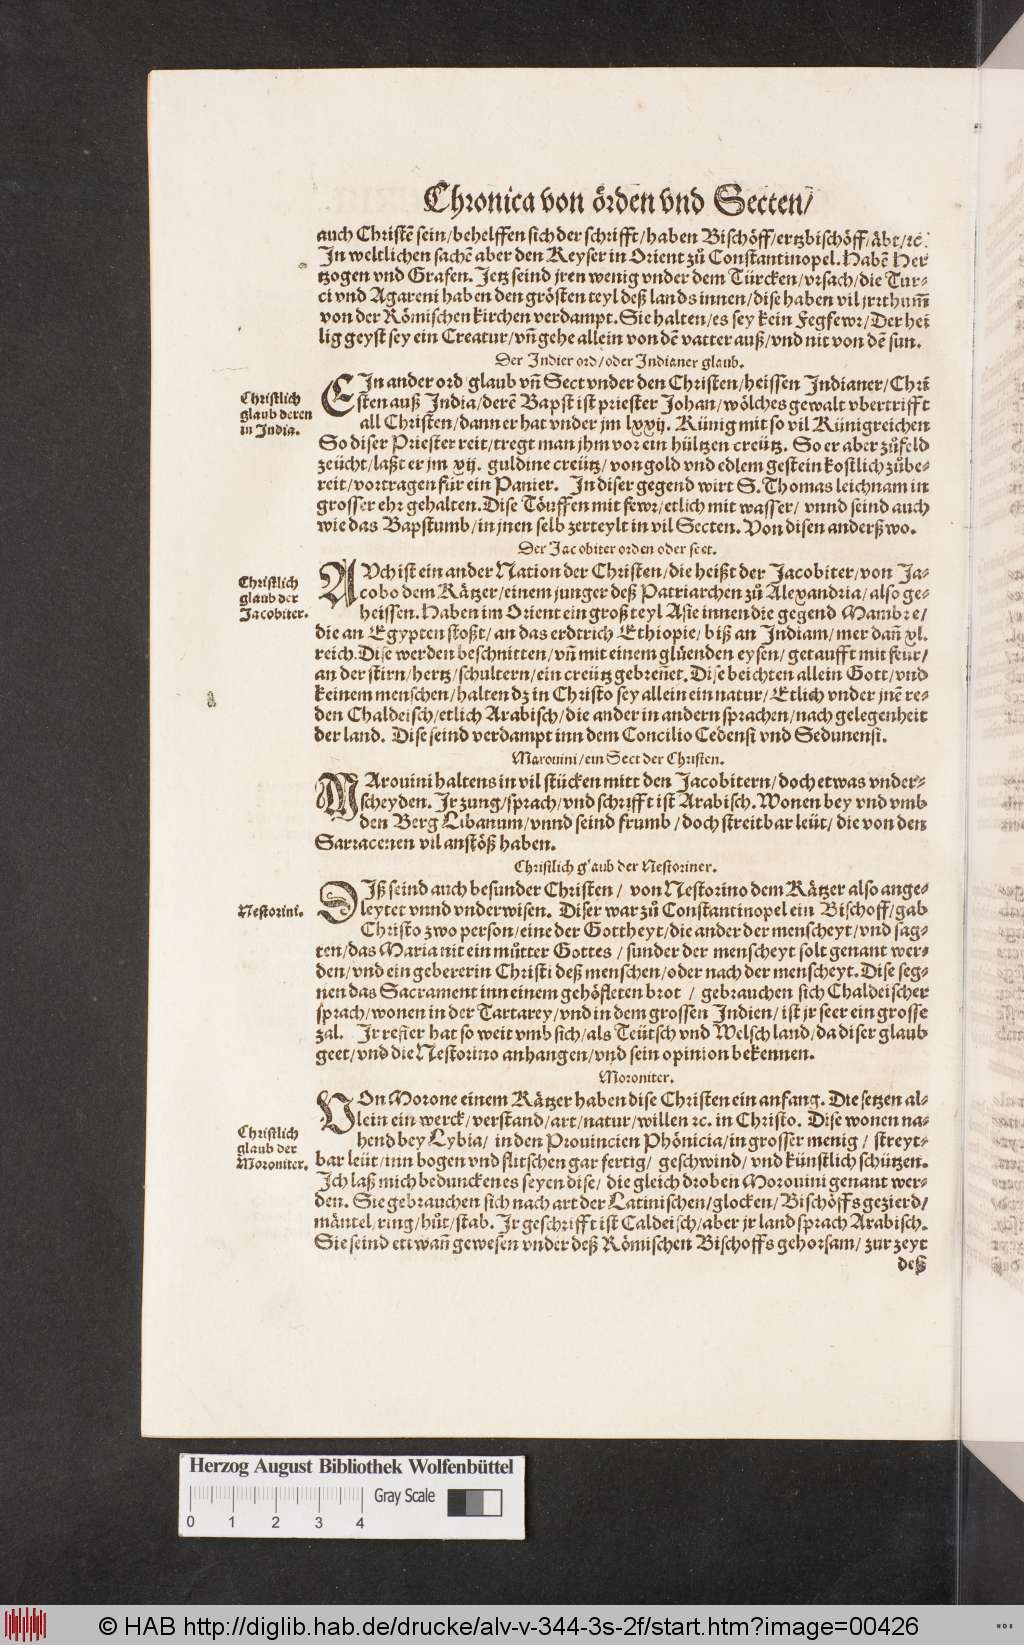 Chronica von örden vnd Secten/
auch Christē sein/behelffen sich der schrifft/haben Bischöff/ertzbischöff/äbt/ꝛc.
In weltlichen sachē aber den Keyser in Orient zů Constantinopel. Habē Her
tzogen vnd Grafen. Jetz seind jren wenig vnder dem Türcken/vrsach/die Tur-
ci vnd Agareni haben den grösten teyl deß lands innen/dise haben vil jrrthum̄
von der Römischen kirchen verdampt. Sie halten/es sey kein Fegfewr/Der hei
lig geyst sey ein Creatur/vn̄ gehe allein von dē vatter auß/vnd nit von dē sun.
Der Indier ord/oder Indianer glaub.
Christlich
glaub deren
in India.
EIn ander ord glaub vn̄ Sect vnder den Christen/heissen Indianer/Chri
sten auß India/derē Bapst ist priester Johan/wölches gewalt vbertrifft
all Christen/dann er hat vnder jm lxxij. Künig mit so vil Künigreichen
So diser Priester reit/tregt man jhm vor ein hültzen creütz. So er aber zůfeld
zeücht/laßt er jm xij. guldine creütz/von gold vnd edlem gestein kostlich zůbe-
reit/vortragen für ein Panier. In diser gegend wirt S. Thomas leichnam in
grosser ehr gehalten. Dise Töuffen mit fewr/etlich mit wasser/vnnd seind auch
wie das Bapstumb/in jnen selb zerteylt in vil Secten. Von disen anderßwo.
Der Jacobiter orden oder sect.
Christlich
glaub der
Jacobiter.
AVch ist ein ander Nation der Christen/die heißt der Jacobiter/von Ja-
cobo dem Kätzer/einem junger deß Patriarchen zů Alexandria/also ge-
heissen. Haben im Orient ein groß teyl Asie innen die gegend Mambre/
die an Egypten stoßt/an das erdtrich Ethiopie/biß an Indiam/mer dañ xl.
reich. Dise werden beschnitten/vn̄ mit einem glüenden eysen/getaufft mit feur/
an der stirn/hertz/schultern/ein creütz gebreñet. Dise beichten allein Gott/vnd
keinem menschen/halten dz in Christo sey allein ein natur/Etlich vnder jnē re-
den Chaldeisch/etlich Arabisch/die ander in andern sprachen/nach gelegenheit
der land. Dise seind verdampt inn dem Concilio Cedensi vnd Sedunensi.
Marouini/ein Sect der Christen.
MArouini haltens in vil stücken mitt den Jacobitern/doch etwas vnder-
scheyden. Ir zung/sprach/vnd schrifft ist Arabisch. Wonen bey vnd vmb
den Berg Libanum/vnnd seind frumb/doch streitbar leüt/die von den
Sarracenen vil anstöß haben.
Christlich glaub der Nestoriner.
Nestorini.
DIß seind auch besunder Christen/ von Nestorino dem Kätzer also ange-
leytet vnnd vnderwisen. Diser war zů Constantinopel ein Bischoff/gab
Christo zwo person/eine der Gottheyt/die ander der menscheyt/vnd sag-
ten/das Maria nit ein můtter Gottes/sunder der menscheyt solt genant wer-
den/vnd ein gebererin Christi deß menschen/oder nach der menscheyt. Dise seg-
nen das Sacrament inn einem gehöfleten brot/ gebrauchen sich Chaldeischer
sprach/wonen in der Tartarey/vnd in dem grossen Indien/ist jr seer ein grosse
zal. Ir refier hat so weit vmb sich/als Teütsch vnd Welsch land/da diser glaub
geet/vnd die Nestorino anhangen/vnd sein opinion bekennen.
Moroniter.
Christlich
glaub der
Moroniter.
VOn Morone einem Kätzer haben dise Christen ein anfang. Die setzen al-
lein ein werck/verstand/art/natur/willen ꝛc. in Christo. Dise wonen na-
hend bey Lybia/ in den Prouincien Phönicia/in grosser menig/ streyt-
bar leüt/inn bogen vnd flitschen gar fertig/ geschwind/vnd künstlich schützen.
Ich laß mich beduncken es seyen dise/die gleich droben Morouini genant wer-
den. Sie gebrauchen sich nach art der Latinischen/glocken/Bischöffs gezierd/
mäntel/ring/hůt/stab. Ir geschrifft ist Caldeisch/aber jr landsprach Arabisch.
Sie seind etiwañ gewesen vnder deß Römischen Bischoffs gehorsam/ zur zeyt
deß
Herzog August Bibliothek Wolfenbüttel
Gray Scale
0 1 2 3 4
© HAB http://diglib.hab.de/drucke/alv-v-344-3s-2f/start.htm?image=00426